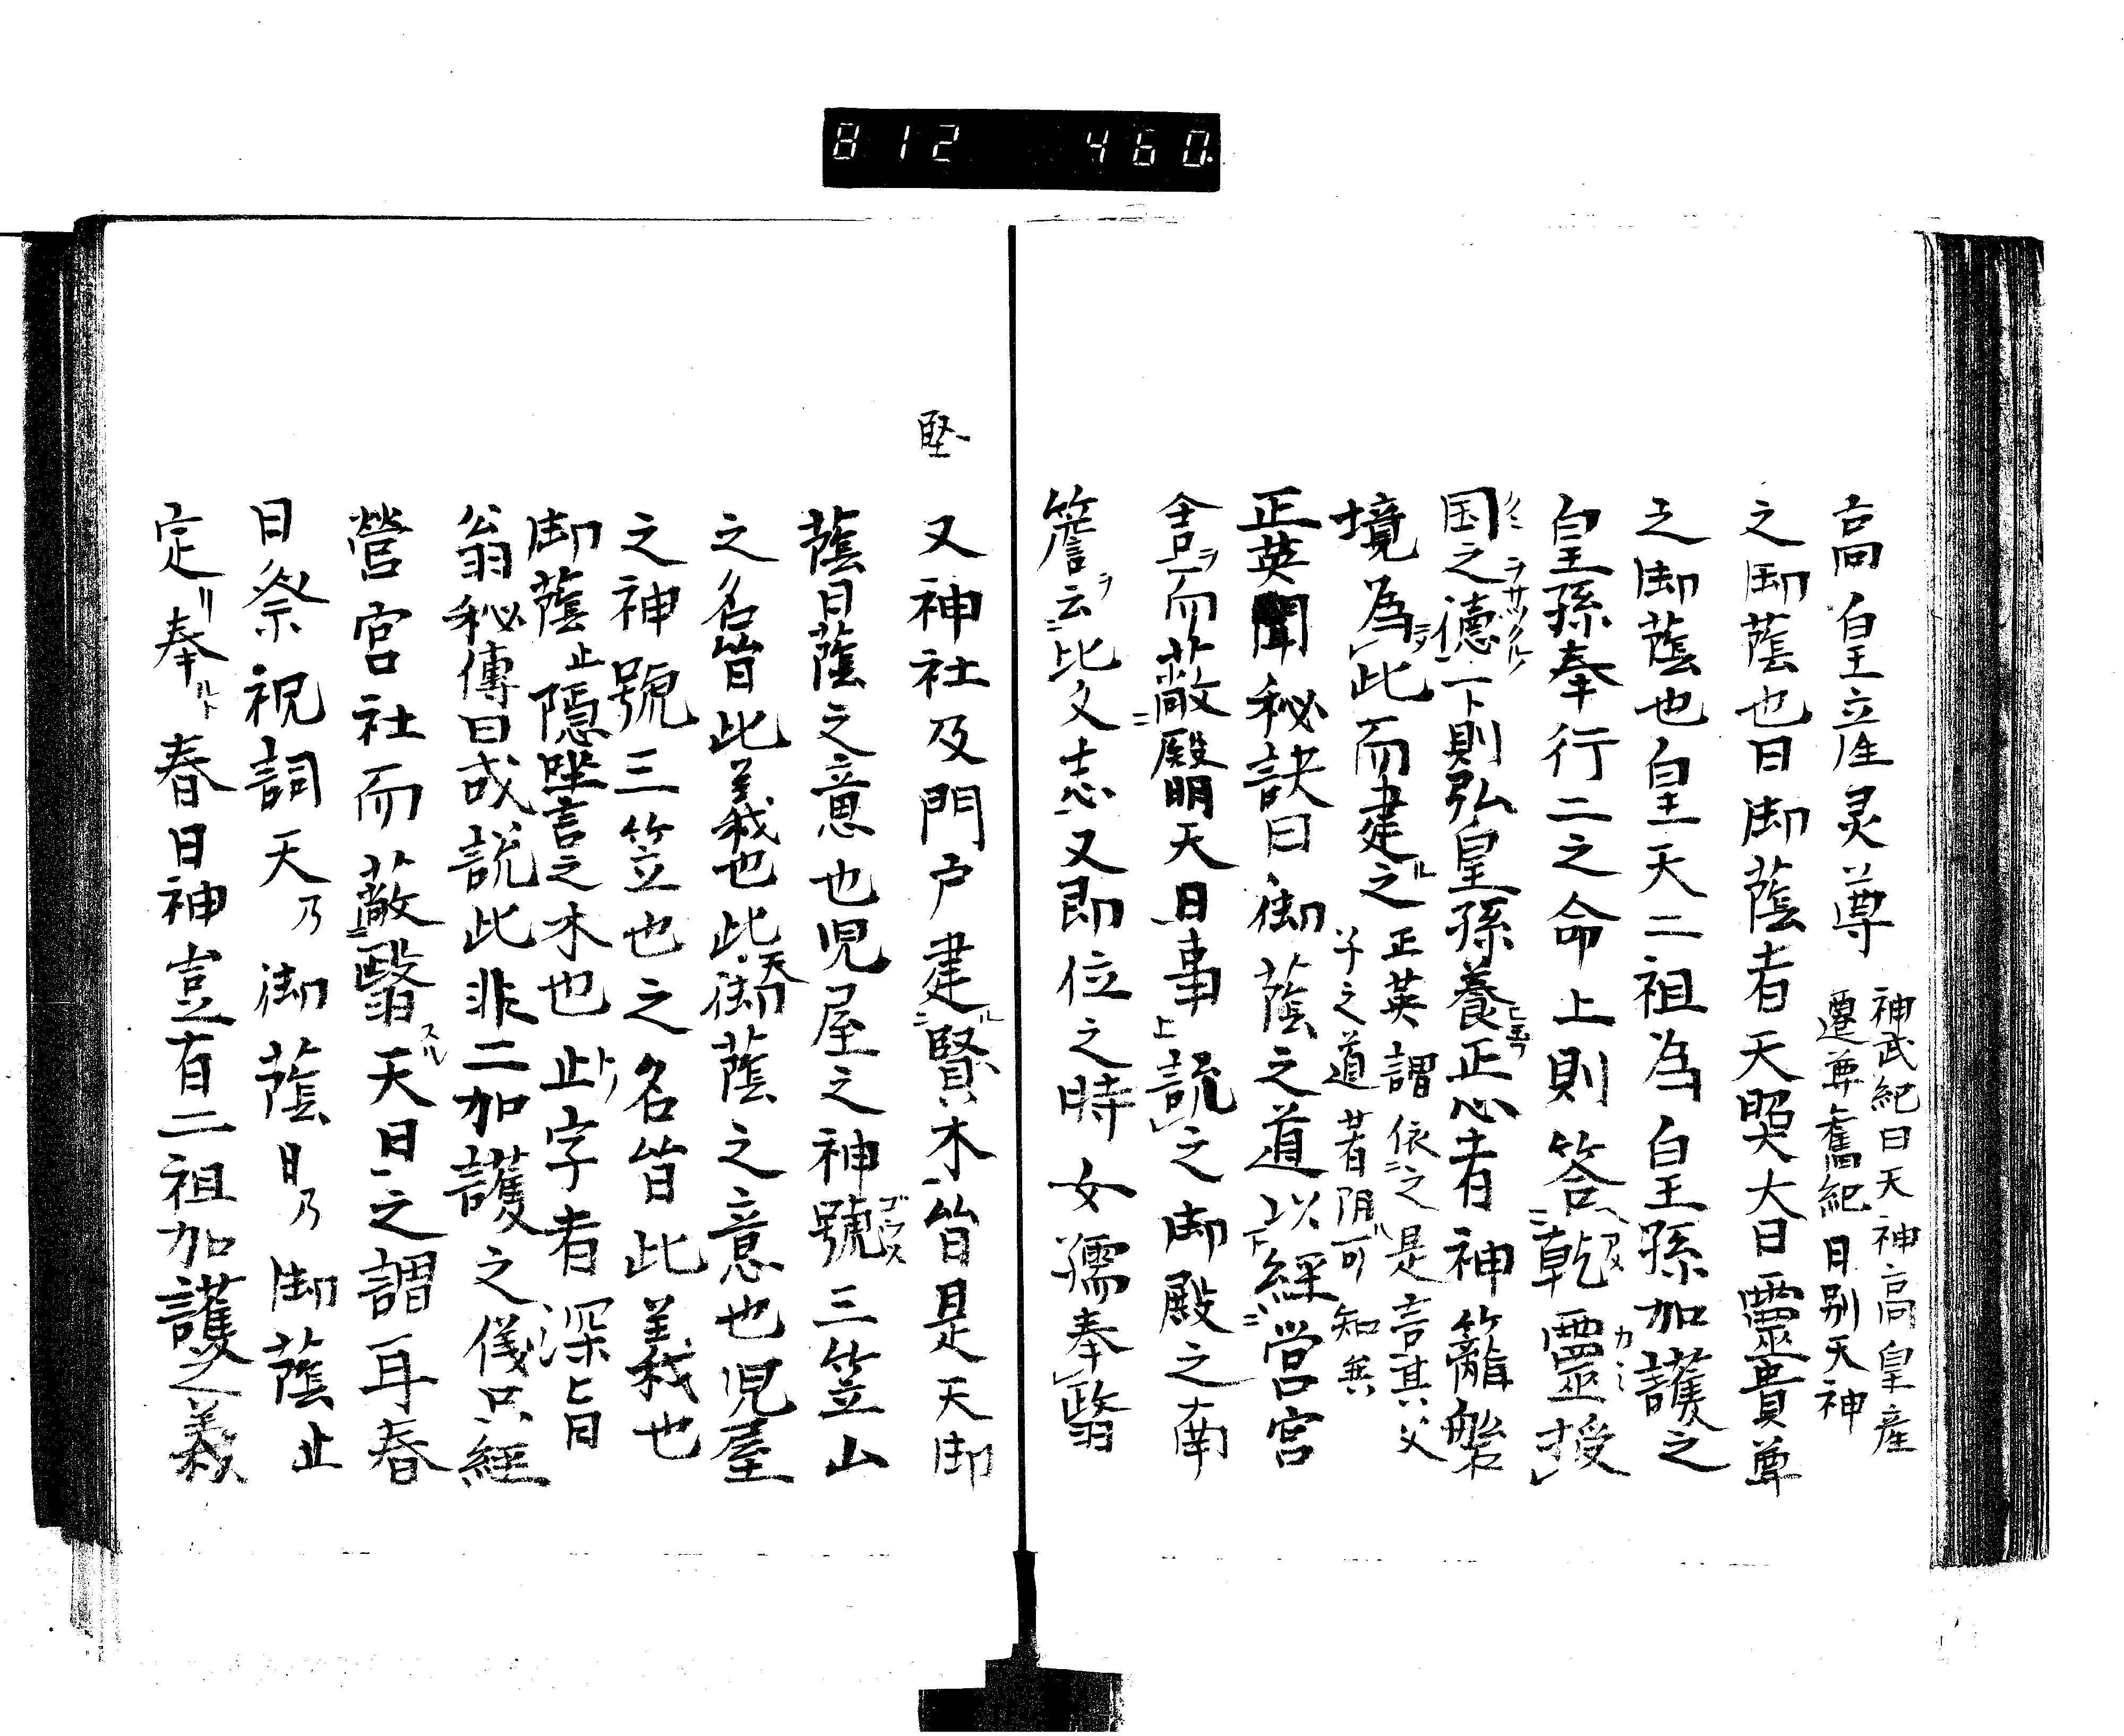 812 460
高皇立産灵尊 神武紀曰天神高皇産
遷尊舊紀曰別天神
之御蔭也日御蔭者天照大日靈貴尊
之御蔭也皇天二祖為皇孫加護之
皇孫奉行二之命上則答乾靈授
国之德下則弘皇孫養正心者神籬磐
境為此而建之 正英謂依之是言其父
子之道者阴可知矣
正英聞秘訣曰御蔭之道以經営宮
舎而蔽殿明天日事説之御殿之南
簷云比文志又即位之時女孺奉翳
堅
又神社及門戸建賢木皆是天御
蔭日蔭之意也児屋之神號三笠山
之名皆此義也此天御蔭之意也児屋
之神號三笠也之名皆此義也
御蔭止隠坐言之木也止字者深旨
翁秘傳曰或説此非二加護之儀只經
營宮社而蔽翳天日之謂耳春
日祭祝詞天乃御蔭日乃御蔭止
定奉春日神豈有二祖加護之義